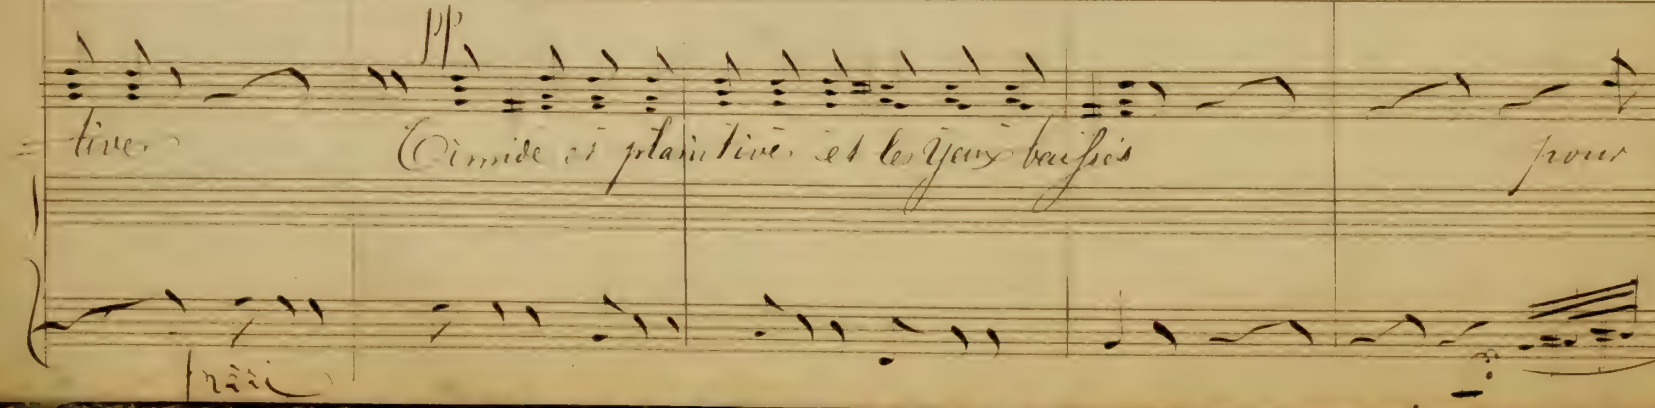 pp
tive. Timide et plaintive. et les yeux baissés pour